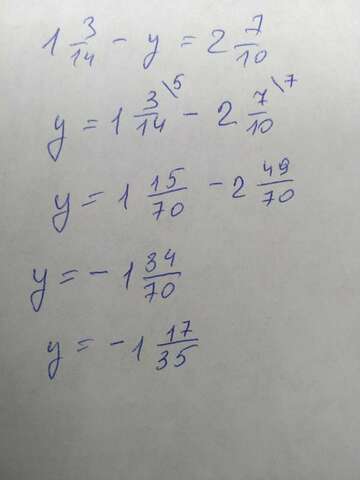 1 3/14 - y = 2 7/10
y = 1 3/14 \5 - 2 7/10 \7
y = 1 15/70 - 2 49/70
y = - 1 34/70
y = - 1 17/35